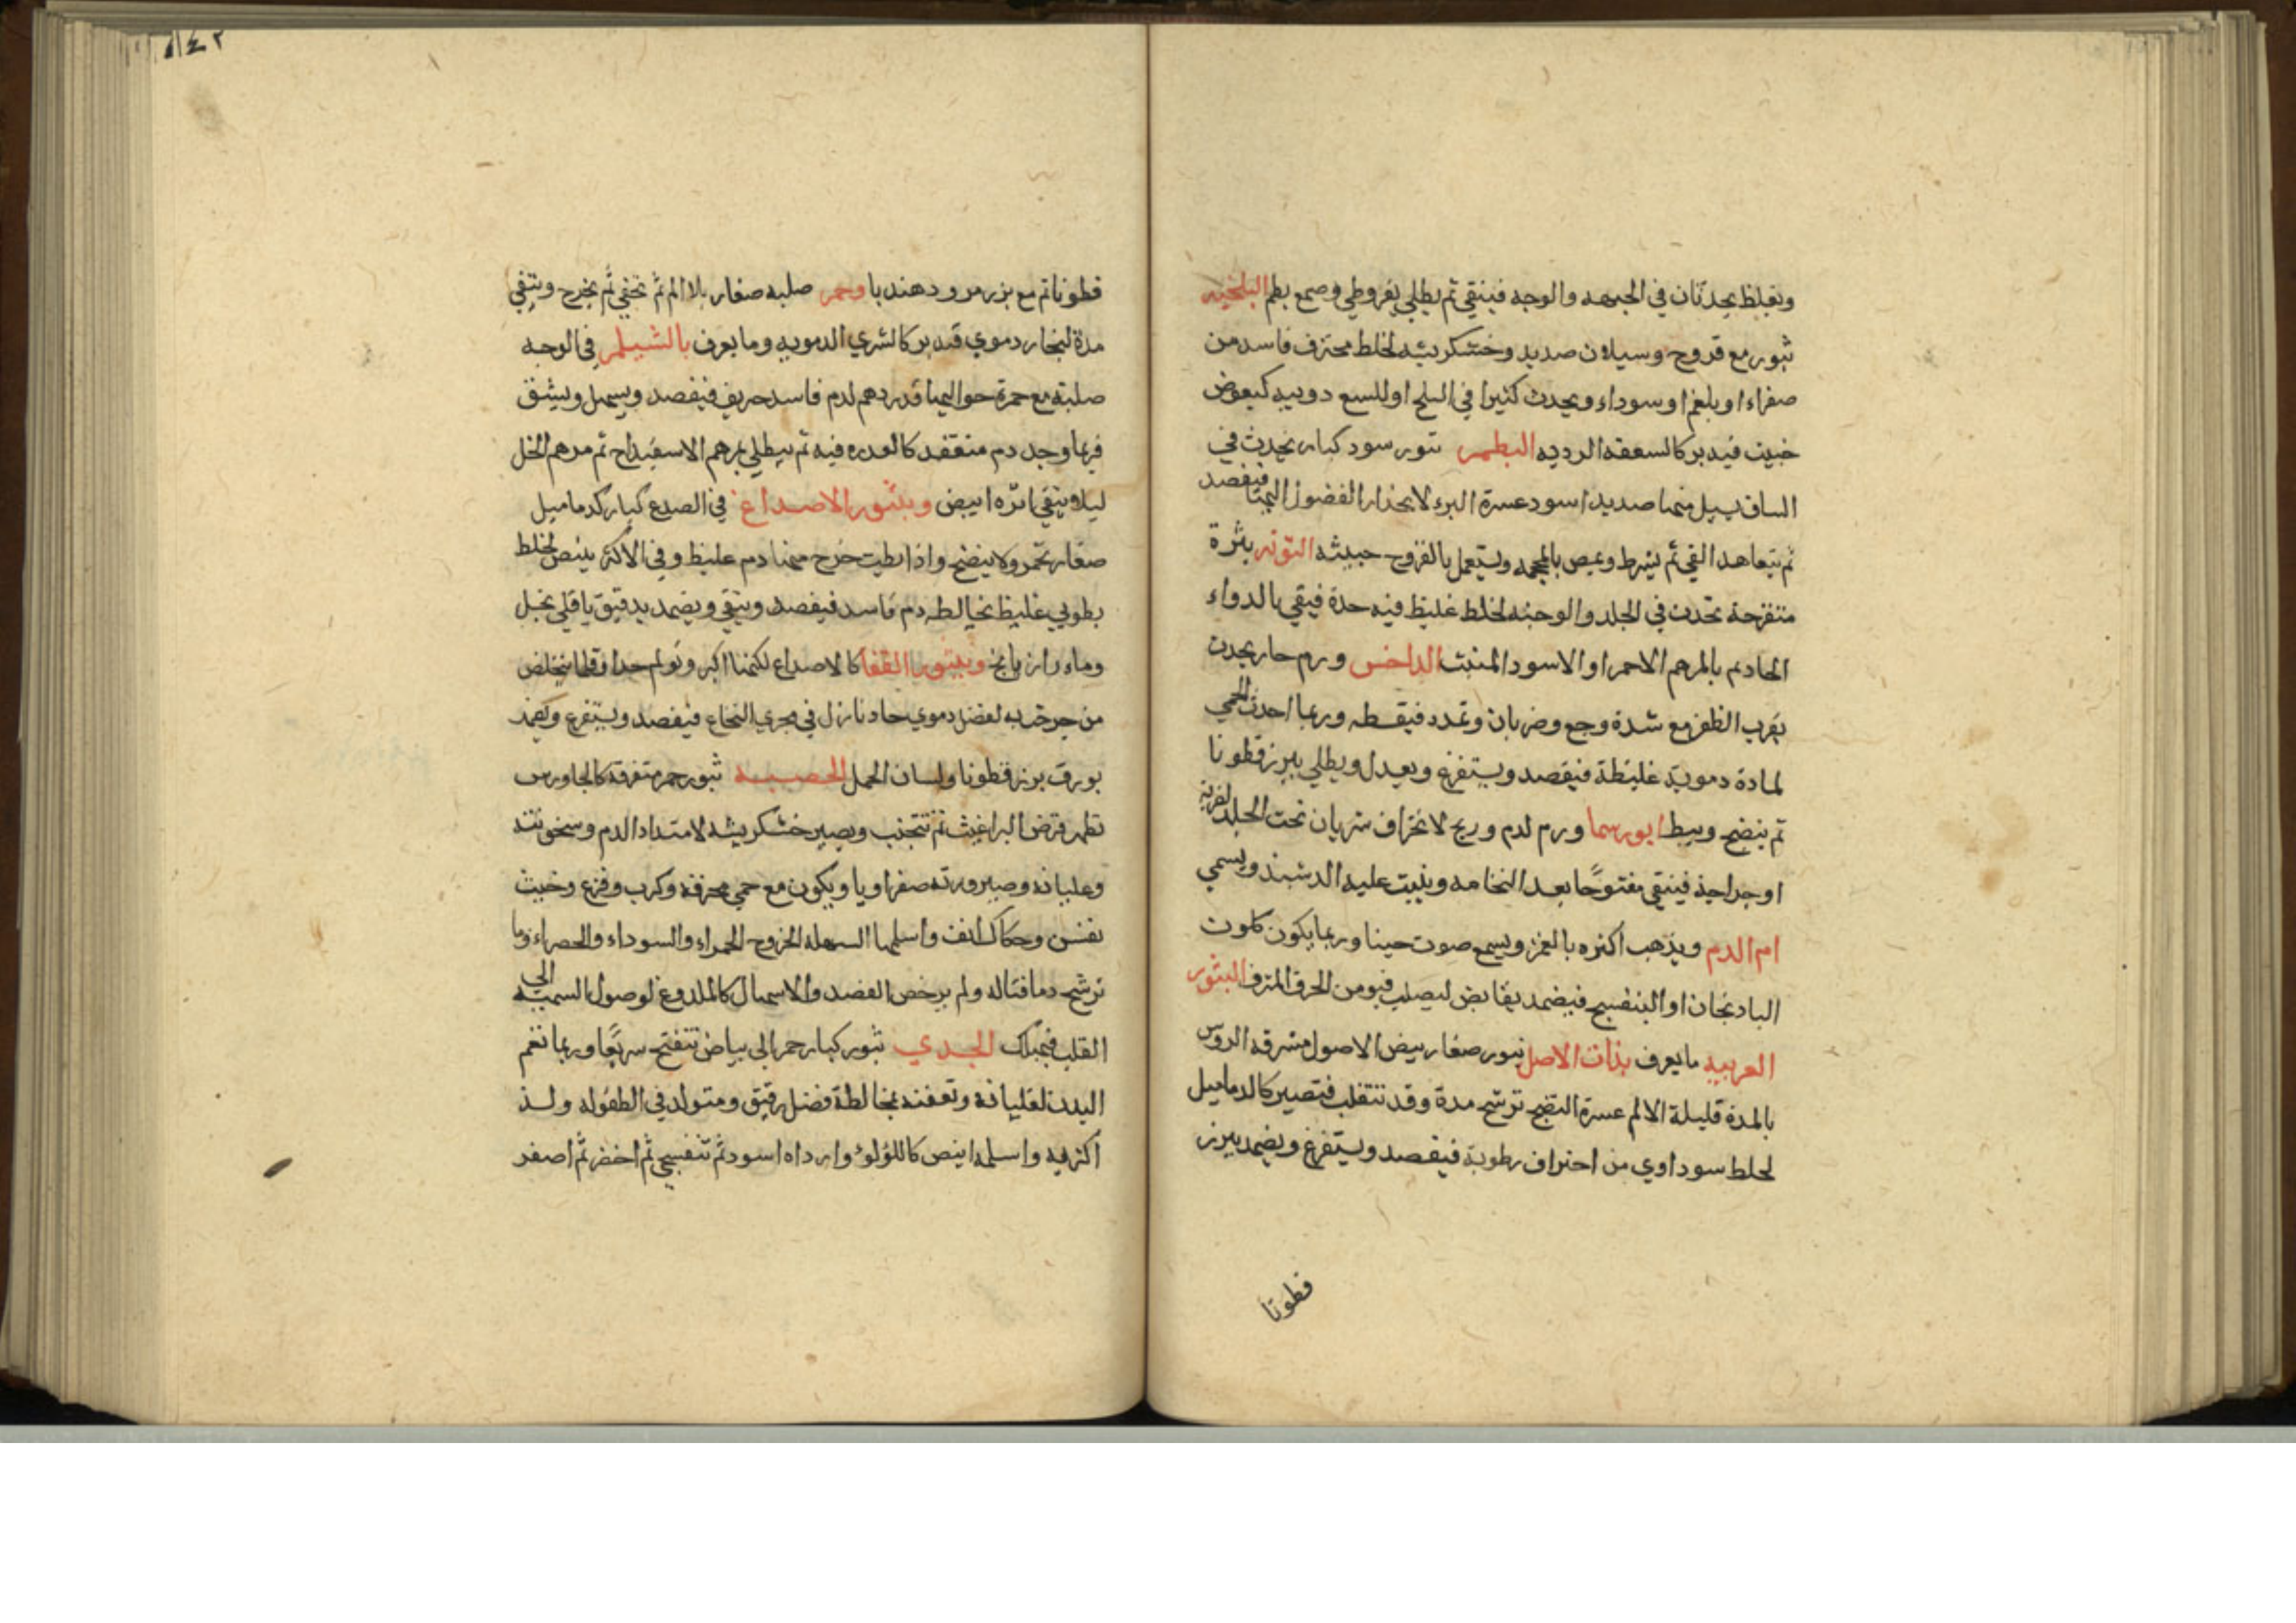 وتغلظ يحدثان في الجبهه والوجه فينقي ثم يطلي بقروطي وصمغ بطم البلخيه
ثبور مع قروح وسيلان صديد وخشكريشه لخلط محترف فاسد من
صفراء او بلغم او سوداء ويحدث كثيرا في البلخ او للسع دويبه كبعوض
خبيث فيدبر كالسعفه الرديه البطمر ثبور سود كبار يحدث في
الساق يسيل منها صديد اسود عسرة البرء لانحدار الفضول اليها فيفصد
ثم يتعاهد القي ثم يشرط ويمص بالمحجمه ويستعمل بالقروح حبيثه التوته بثرة
متقرحة تحدث في الجلد والوجنه لخلط غليظ فيه حدة فيقي بالدواء
الحاد ثم بالمرهم الاحمر او الاسود المنبت الداخس ورم حار يحدث
بقرب الظفر مع شدة وجع وضربان وتمدد فيقسطه وربما احدث الحمي
لمادة دموية غليظة فيفصد ويستفرغ ويعدل ويطلي ببزر قطونا
ثم ينضج ويبط ابورسما ورم لدم وريح لانخراف شريان تحت الجلد لضربة
او جراحة فينقي مفتوحًا بعد التحامه وينبت عليه الدشبذ ويسمي
ام الدم ويذهب اكثره بالغمز ويسمع صوت حينا وربما يكون كلون
البادنجان او البنفسج فيضمد بقابض ليصلب فيومن الخرق المترف البثور
الغريبه ما يعرف بذات الاصل ثبور صغار بيض الاصول مشرقه الروس
بالمدة قليلة الالم عسرة النضج ترشح مدة وقد تنقلب فتصير كالدماميل
لخلط سوداوي من احتراف رطوبة فيفصد ويستفرغ ويضمد ببزر
قطونا
قطونا ثم مع بزر مرو ودهندبا وحمر صلبه صغار بلا الم ثم تخفي ثم يخرج وتبقي
مدة لبخار دموي فتدبر كالشري الدمويه وما يعرف بالشيلمر في الوجه
صلبة مع حمرة حواليها قدر درهم لدم فاسد حريف فيفصد ويسهل ويشق
فربما وجد دم منعقد كالغدره فيه ثم يطلي بمرهم الاسفيداج ثم مرهم الخل
ليلا يبقي اثره ابيض وبثور الاصداغ في الصدغ كبار كدماميل
صغار تحمر ولا ينضج واذا بطيت خرج منها دم غليظ وفي الاكثر بيض لخلط
بطوبي غليظ يخالطه دم فاسد فيفصد وينقي ويضمد بدقيق باقلي بخل
وماء رازيانج وبثور القفا كالاصداع لكنها اكبر وتولم جدا وقلما يخلص
من جرحت به لفضل دموي حاد نازل في مجري النخاع فيفصد ويستفرغ ويضمد
بورق بزر قطونا ولسان الحمل الحصبه ثبور حمر متفرقة كالجاورس
تظهر قرص البراغيث ثم تتجنب ويصير خشكريشه لامتداد الدم وسخونته
وغليانه وصيرورته صفراويا ويكون مع حمي محرقه وكرب وفزع وخبيث
نفس وحكاك انف واسلمها السهله الخروج الحمراء والسوداء والحصراء وما
ترشح دما فتاله ولم يرخص الفصد والاسهال كالملدوغ لوصول السميه الي
القلب فيهلك الجدي ثبور كبار حمر الي بياض تنفتح سريعًا وربما تغم
البدن لغليانه وتعفنه بمخالطة فضل رقيق ومتولد في الطفوله ولذ
اكثر فيه واسلمه ابيض كاللؤلوء وارداه اسود ثم بنفسجي ثم اخضر ثم اصفر